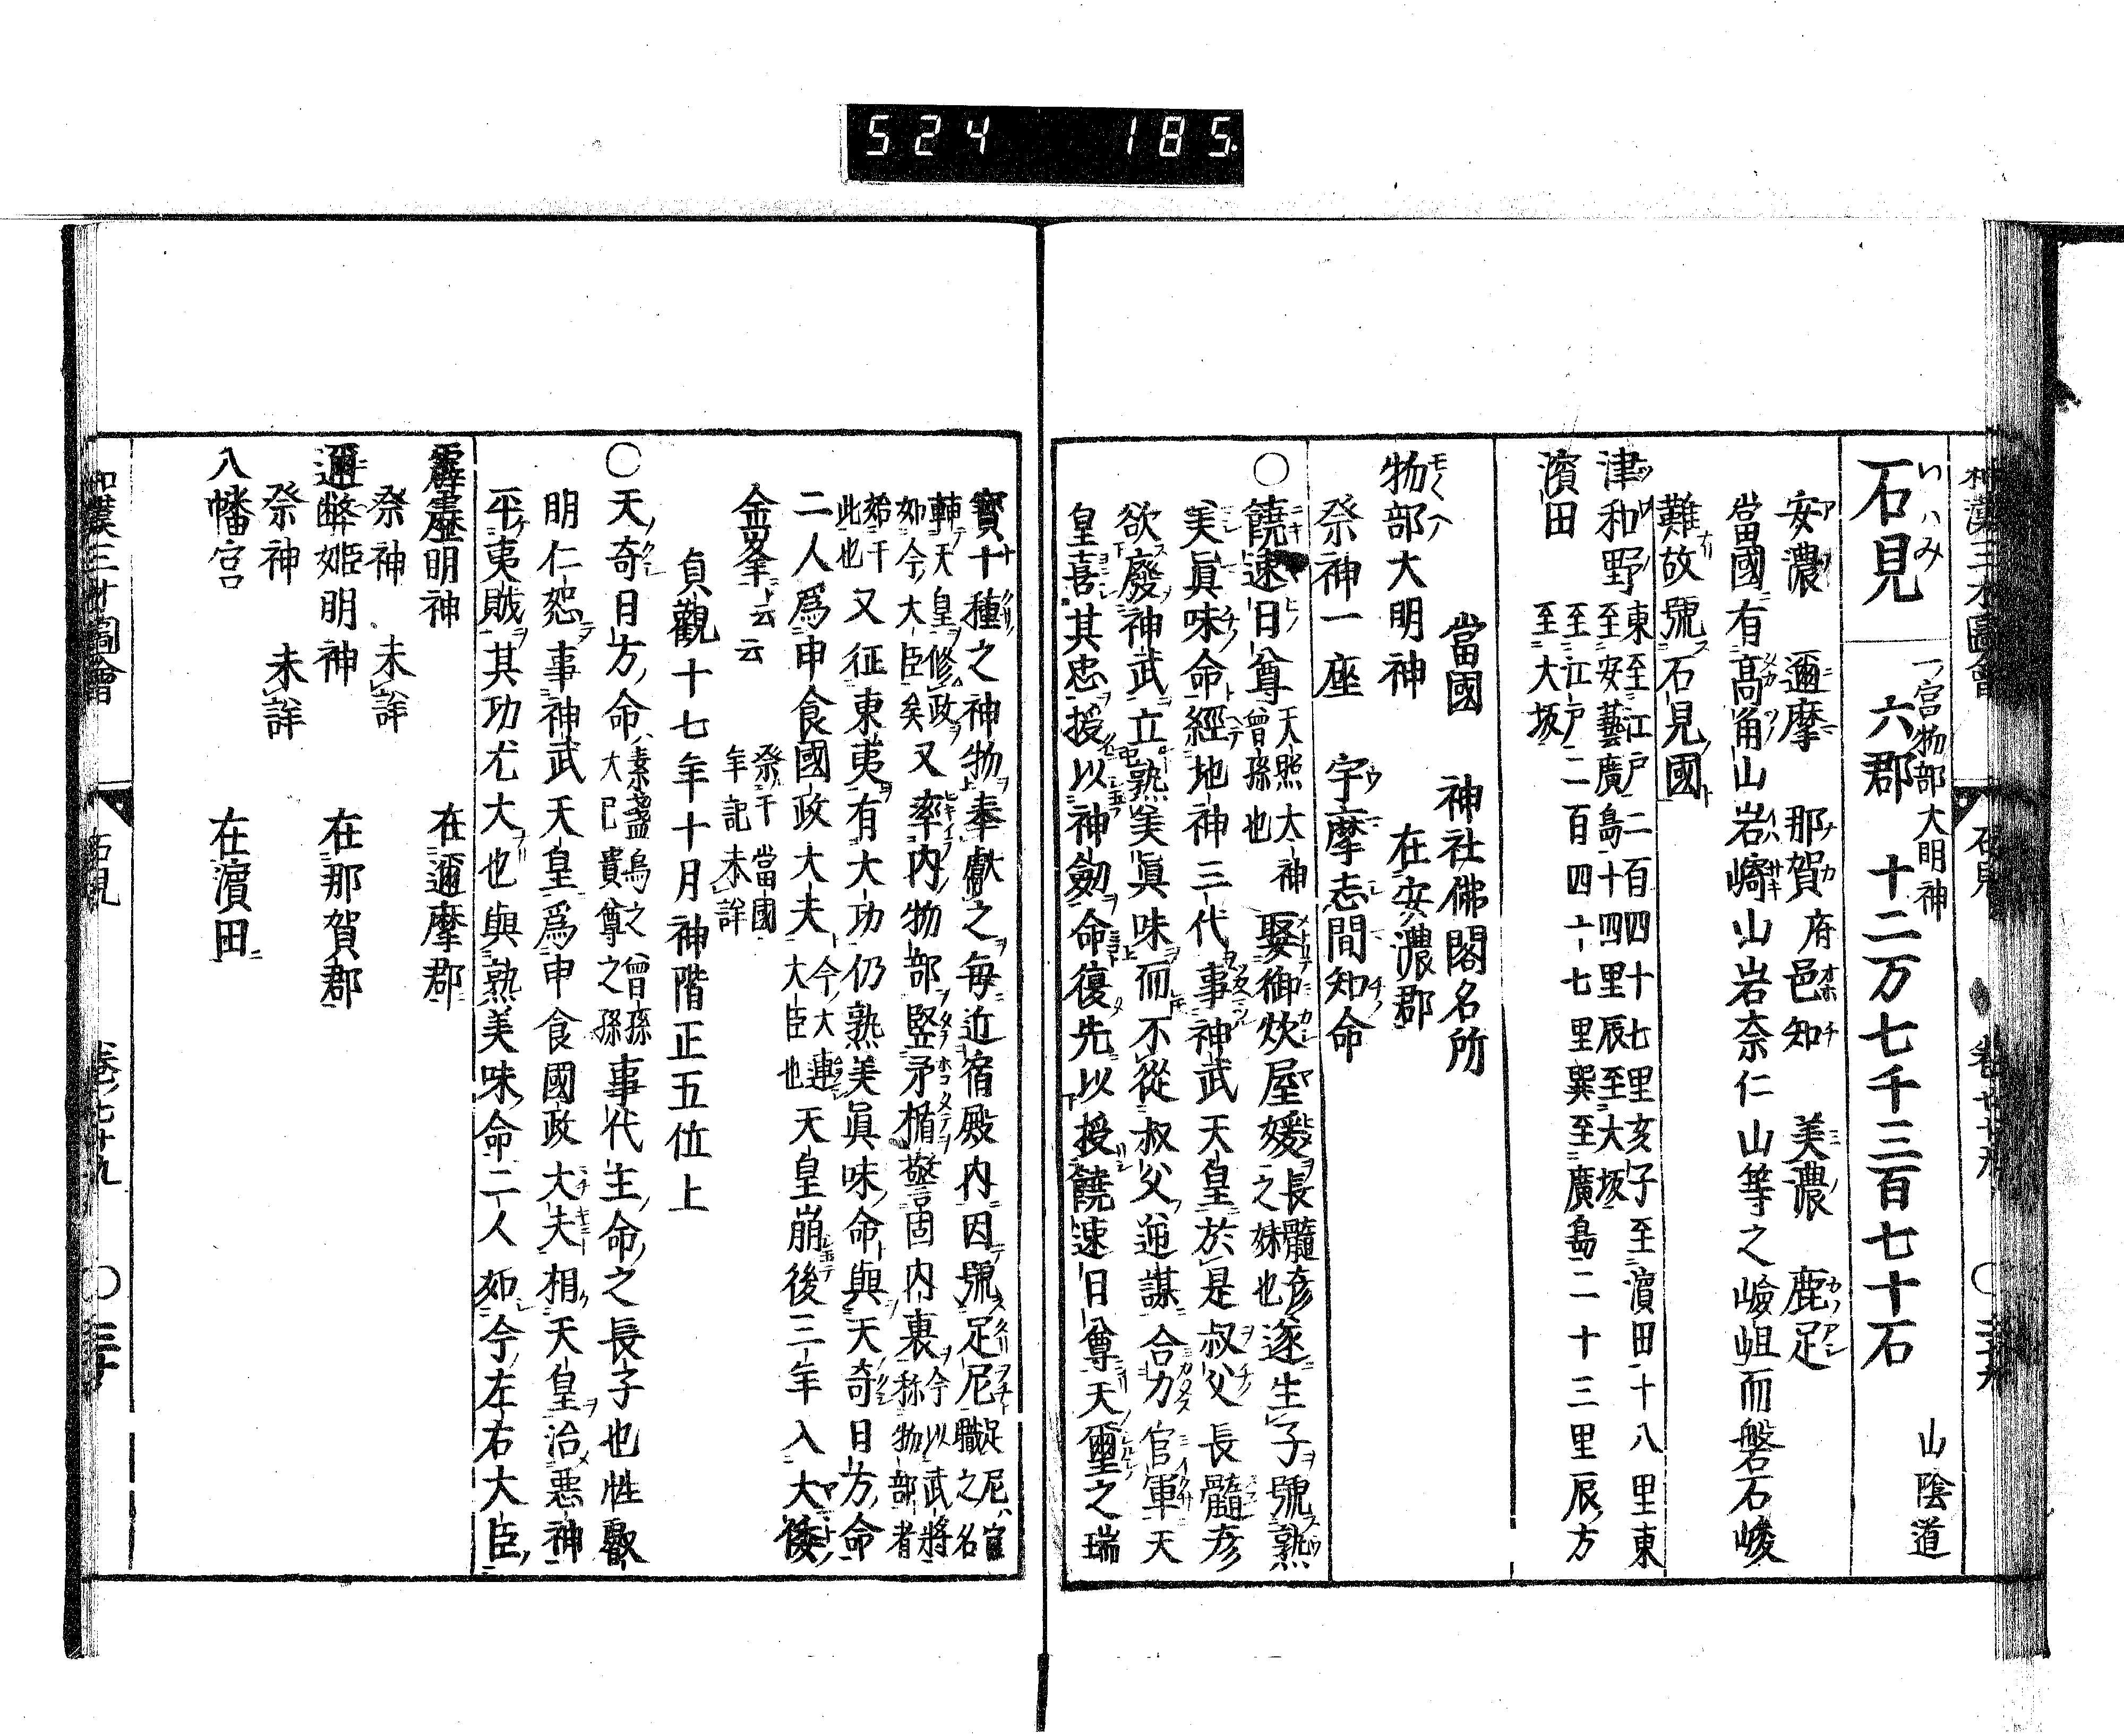 524 185.
和漢三才圖會 石見 卷七十九 〇三十九
石見 六郡 十二万七千三百七十石 山陰道
一宮物部大明神
安濃 邇摩 那賀府 邑知 美濃 鹿足
當國有高角山岩﨑山岩奈仁山等之嶮岨而磐石峻
難故號石見國
津和野 東至江戸二百四十七里亥子至濱田十八里東
至安藝廣島十四里辰至大坂
濱田 至江戸二百四十七里巽至廣島二十三里辰方
至大坂
當國 神社佛閣名所
物部大明神 在安濃郡
祭神一座 宇摩志間知命
〇饒速日尊天照太神曾孫也娶御炊屋媛長髓彦之妹也遂生子號熟
美眞味命經地神三代事神武天皇於是叔父長髓彦
欲廢神武立熟美眞味而不從叔父逆謀合力官軍天
皇喜其忠授以神劔命復先以授饒速日尊天璽之瑞
寳十種之神物奉獻之毎近宿殿内因號足尼足尼官職之名
輔天皇修政如今大臣矣又率内物部竪矛楯警固内裏今以武將称物部者
始于此也又征東夷有大功仍熟美眞味命與天奇日方命
二人爲申食國政大夫今大連大臣也天皇崩後三年入大倭
金峯云云 祭于當國年記未詳
貞觀十七年十月神階正五位上
〇天奇日方命素盞烏之曾孫大已貴尊之孫事代主命之長子也性叡
明仁恕事神武天皇爲申食國政大夫相天皇治悪神
平夷戝其功尤大也與熟美味命二人如今左右大臣
霹靂明神 在邇摩郡
祭神 未詳
邇幣姫明神 在那賀郡
祭神 未詳
八幡宮 在濱田
和漢三才圖會 石見 卷七十九 〇三十